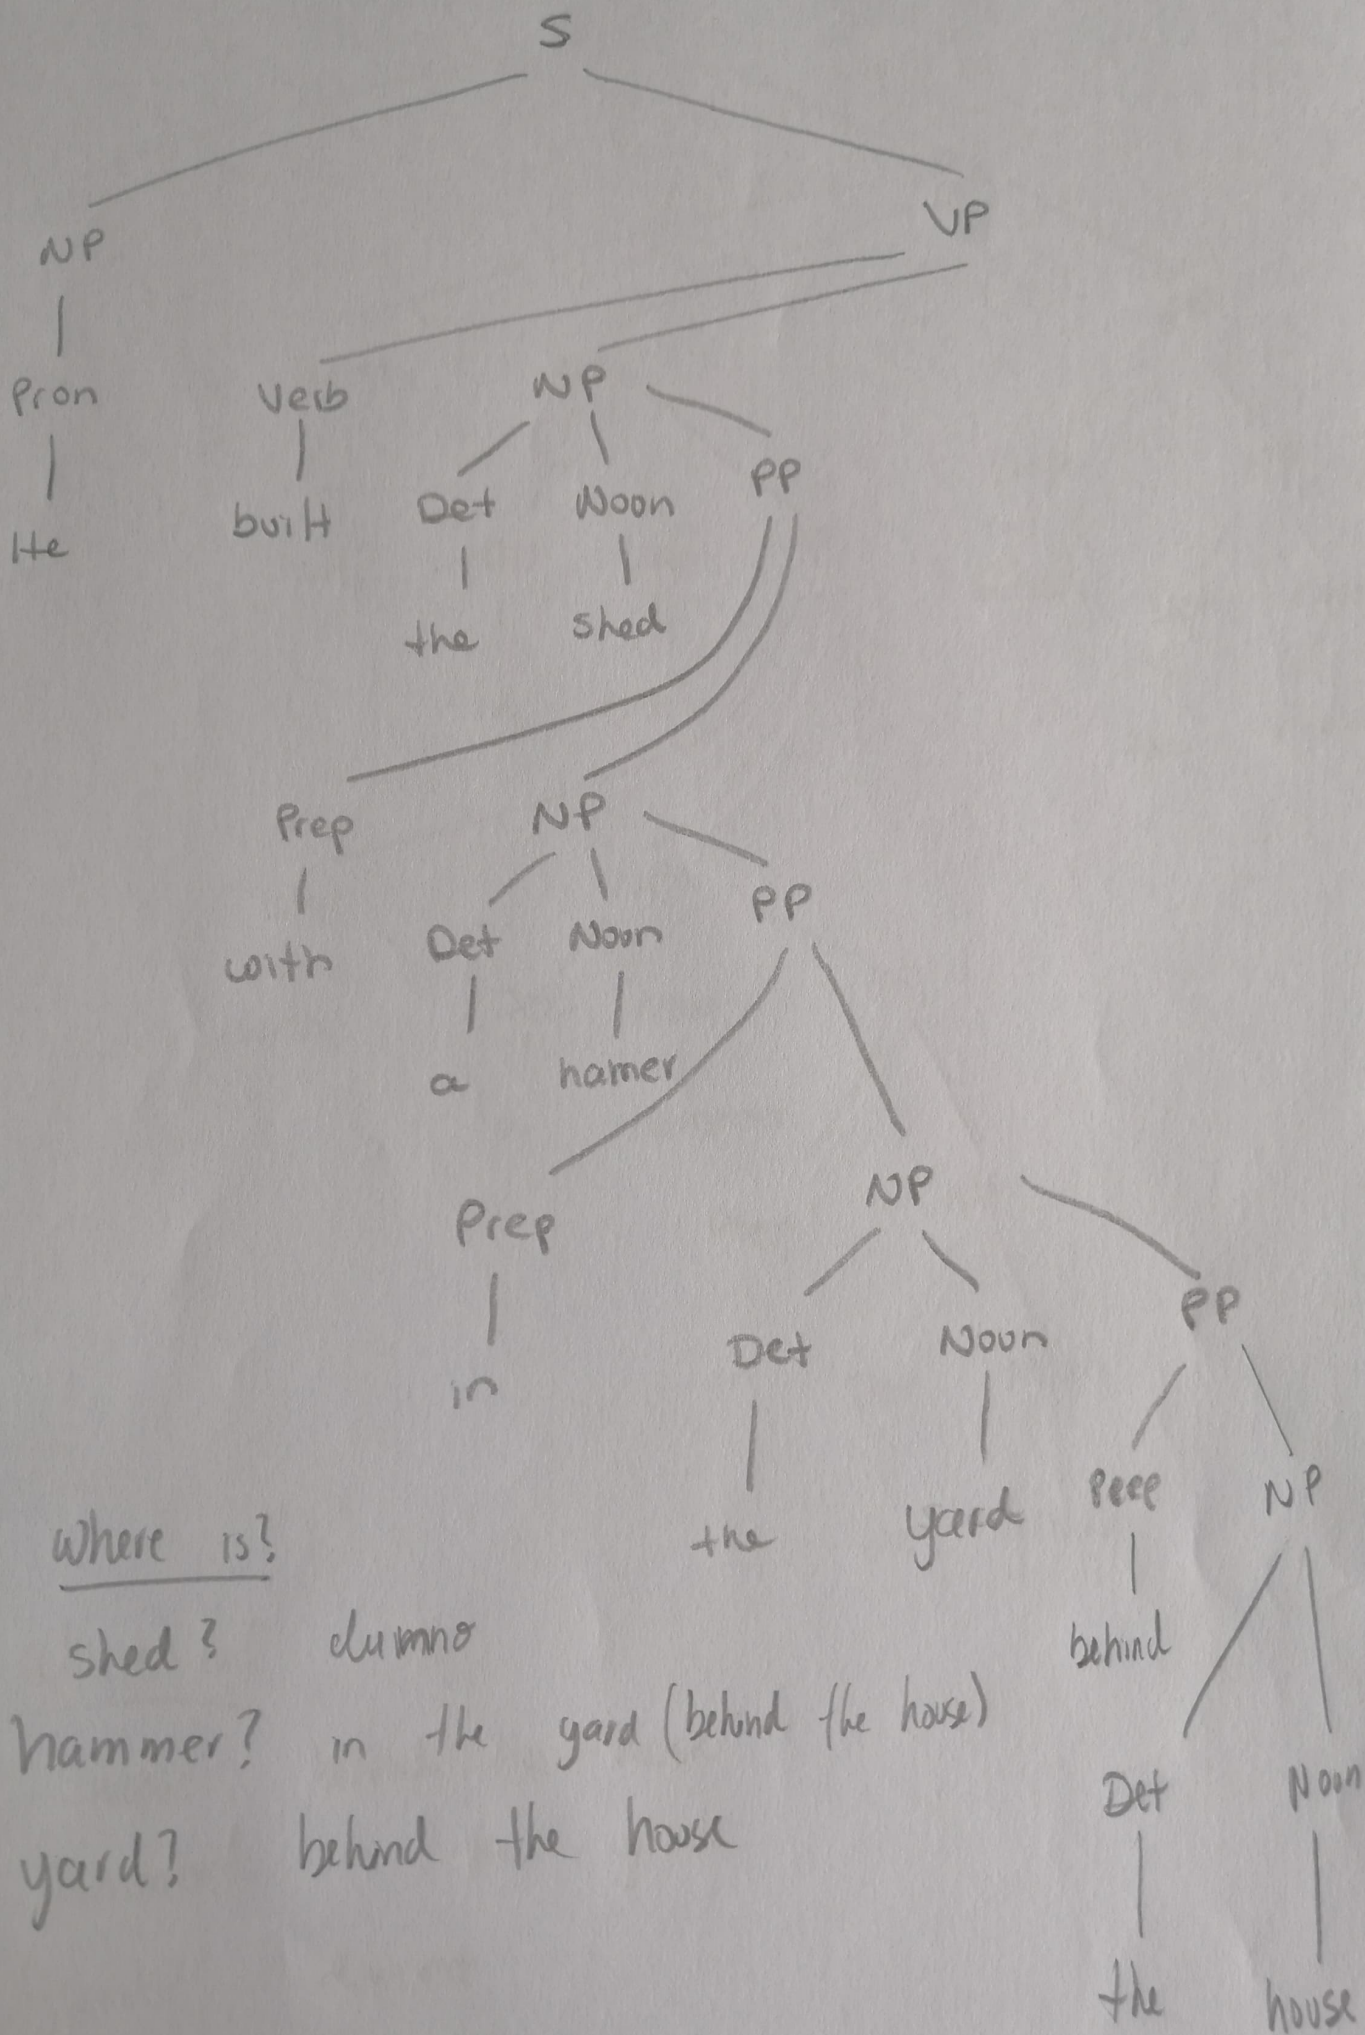 S
NP VP
Pron Verb NP
He built Det Noon PP
the shed
Prep NP
with Det Noun PP
a hamer
Prep NP
in Det Noun PP
the yard Prep NP
behind Det Noon
the house
Where is?
shed? dunno
hammer? in the yard (behind the house)
yard? behind the house